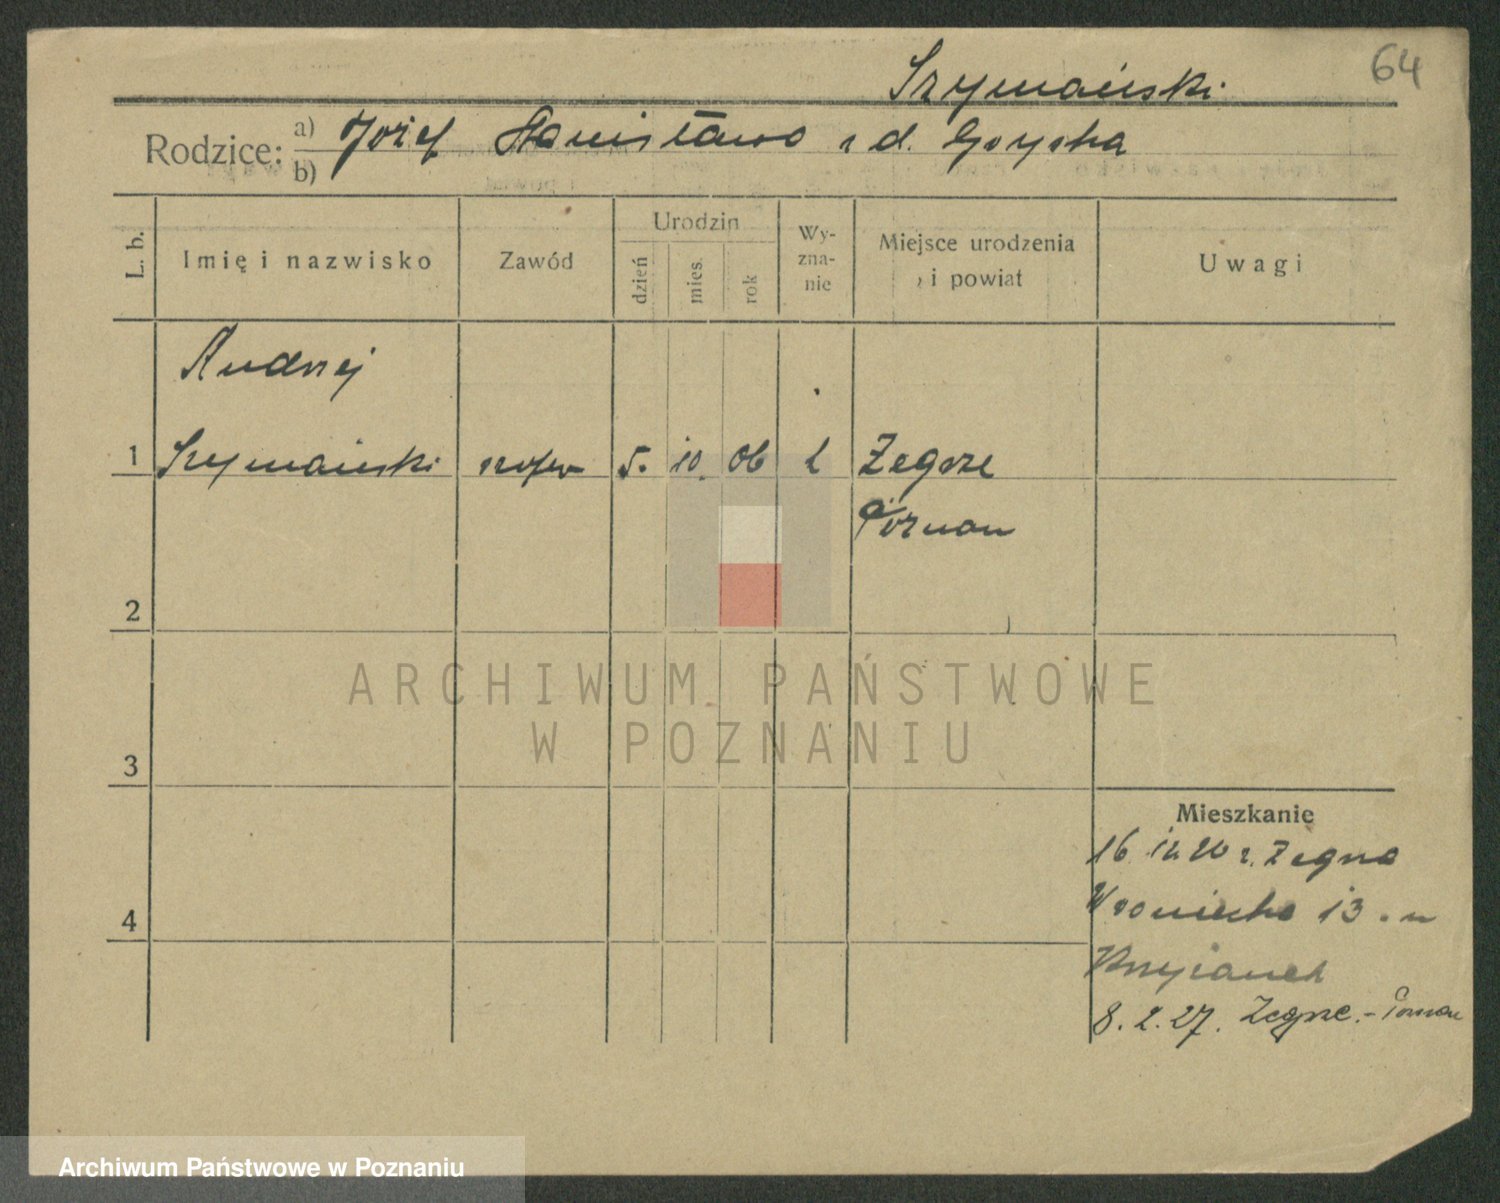 64
Szymański
Rodzice: a) Józef Stanisława z d. Górska
b)
L. b. Imię i nazwisko Zawód Urodzin dzień mies. rok Wy-zna-nie Miejsce urodzenia i powiat Uwagi
Andrzej
1 Szymański szofer 5. 10. 06 k Żegrze
Poznań
2
3
4
Mieszkanie
16 12 26 z Żegrza
Wroniecka 13
8. 2. 27. Żegrze. - Poznań
ARCHIWUM PAŃSTWOWE
W POZNANIU
Archiwum Państwowe w Poznaniu